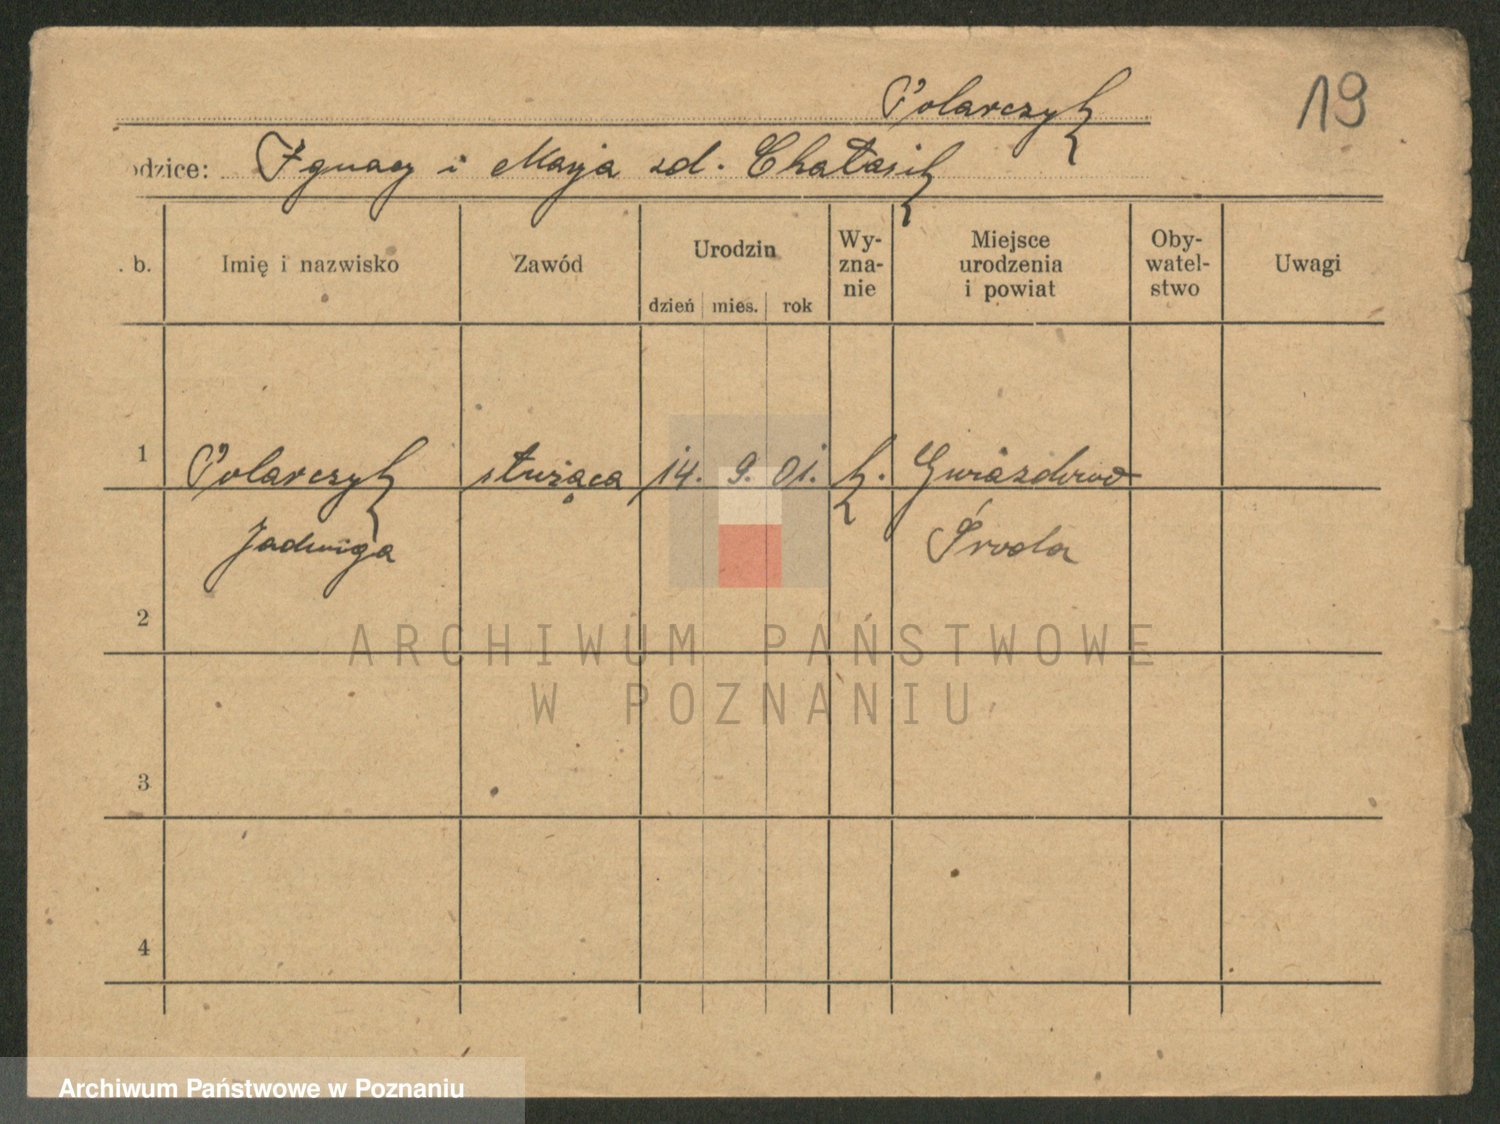 Polarczyk
19
odzice: Ignacy i Marja zd. Chałasik
. b.
Imię i nazwisko
Zawód
Urodzin
dzień mies. rok
Wy-
zna-
nie
Miejsce
urodzenia
i powiat
Oby-
watel-
stwo
Uwagi
1 Polarczyk służąca 14. 9. 01. k. Gwiazdowo
Jadwiga Środa
2
ARCHIWUM PAŃSTWOWE
W POZNANIU
3
4
Archiwum Państwowe w Poznaniu